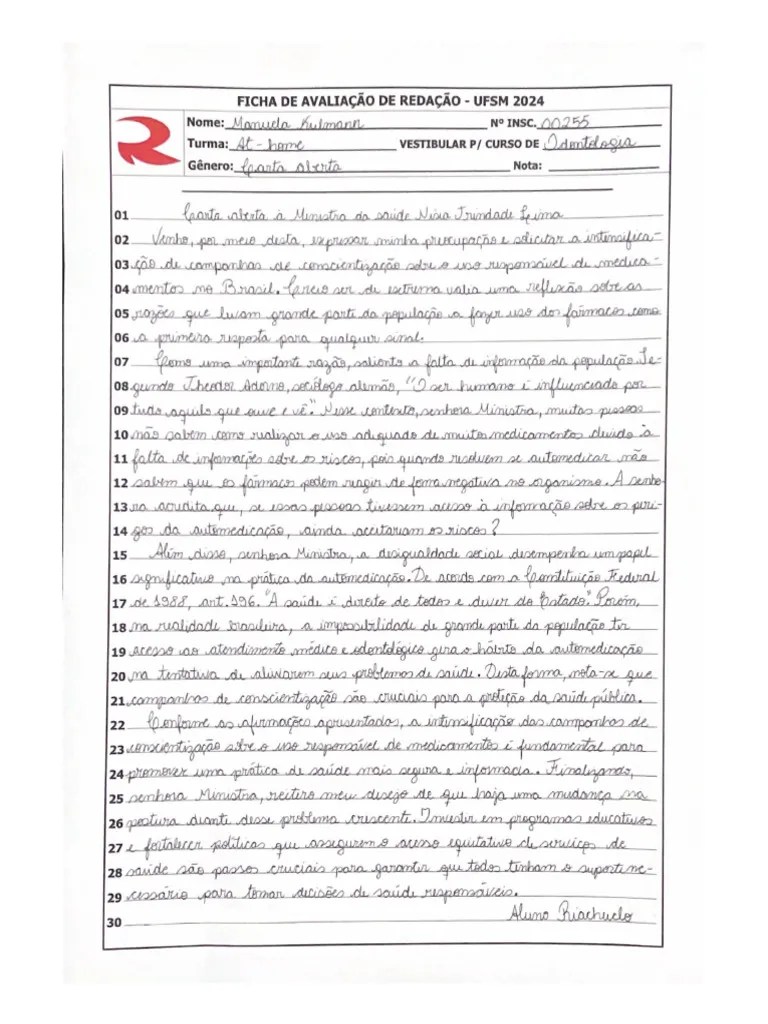 FICHA DE AVALIAÇÃO DE REDAÇÃO - UFSM 2024
Nome: Manuela Kulmann Nº INSC. 00255
Turma: At-home VESTIBULAR P/ CURSO DE Odontologia
Gênero: Carta aberta Nota:
01 Carta aberta à Ministra da saúde Nísia Trindade Leima
02 Venho, por meio desta, expressar minha preocupação e solicitar a intensifica-
03 ção de campanhas de conscientização sobre o uso responsável de medica-
04 mentos no Brasil. Creio ser de extrema valia uma reflexão sobre as
05 razões que levam grande parte da população a fazer uso dos fármacos como
06 a primeira resposta para qualquer sinal.
07 Como uma importante razão, saliento a falta de informação da população. Se-
08 gundo Theodor Adorno, sociólogo alemão, "O ser humano é influenciado por
09 tudo aquilo que ouve e vê". Nesse contexto, senhora Ministra, muitas pessoas
10 não sabem como realizar o uso adequado de muitos medicamentos devido à
11 falta de informações sobre os riscos, pois quando resolvem se automedicar não
12 sabem que os fármacos podem reagir de forma negativa no organismo. A senho-
13 ra acredita que, se essas pessoas tivessem acesso à informação sobre os peri-
14 gos da automedicação, ainda aceitariam os riscos?
15 Além disso, senhora Ministra, a desigualdade social desempenha um papel
16 significativo na prática da automedicação. De acordo com a Constituição Federal
17 de 1988, art. 196. "A saúde é direito de todos e dever do Estado" Porém,
18 na realidade brasileira, a impossibilidade de grande parte da população ter
19 acesso ao atendimento médico e odontológico gera o hábito da automedicação
20 na tentativa de aliviarem seus problemas de saúde. Desta forma, nota-se que
21 campanhas de conscientização são cruciais para a proteção da saúde pública.
22 Conforme as afirmações apresentadas, a intensificação das campanhas de
23 conscientização sobre o uso responsável de medicamentos é fundamental para
24 promover uma prática de saúde mais segura e informada. Finalizando,
25 senhora Ministra, reitero meu desejo de que haja uma mudança na
26 postura diante desse problema crescente. Investir em programas educativos
27 e fortalecer políticas que assegurem o acesso equitativo de serviços de
28 saúde são passos cruciais para garantir que todos tenham o suporte ne-
29 cessário para tomar decisões de saúde responsáveis.
30 Aluno Riachuelo